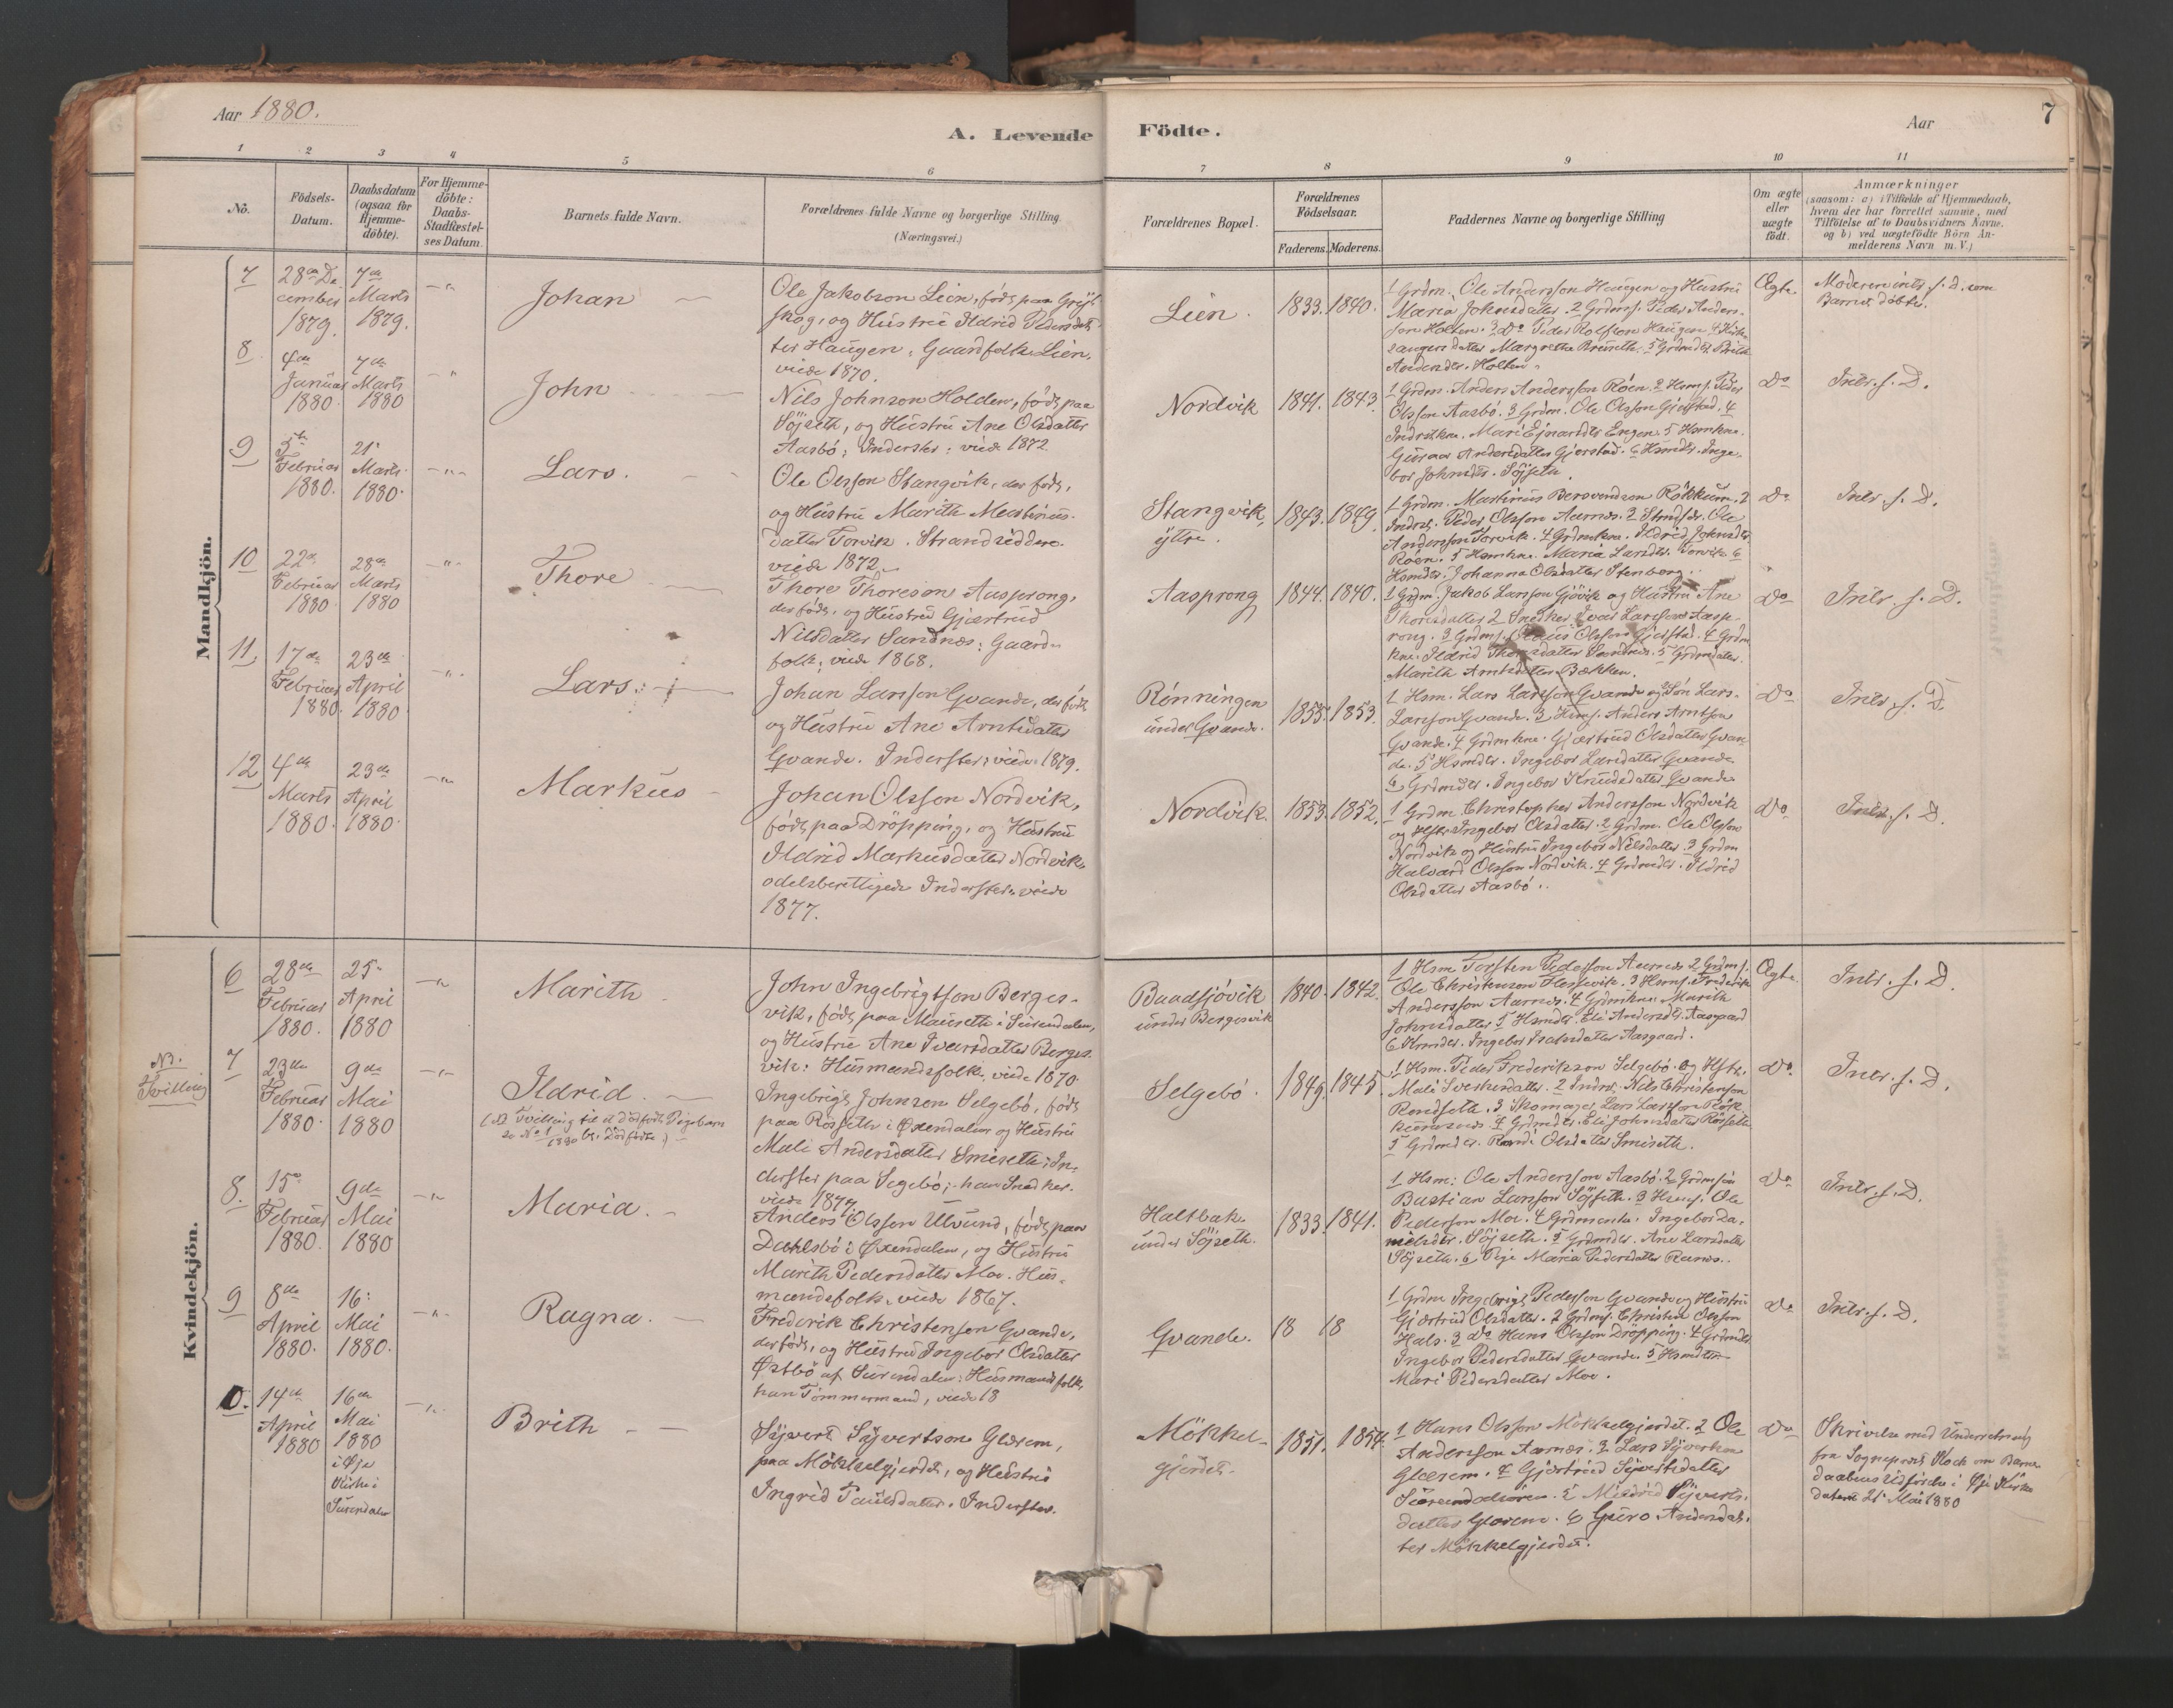 Aar 1880.
A. Levende Födte.
Aar
7
1 2 3 4 5 6 7 8 9 10 11
No.
Födsels-
Datum.
Daabsdatum
(ogsaa for
Hjemme-
döbte).
For Hjemme-
döbte:
Daabs-
Stadfæstel-
ses Datum.
Barnets fulde Navn.
Forældrenes fulde Navne og borgerlige Stilling.
(Næringsvei.)
Forældrenes Bopæl.
Forældrenes
Födselsaar.
Faderens. Moderens.
Faddernes Navne og borgerlige Stilling
Om ægte
eller
uægte
födt.
Anmærkninger
(saasom: a) i Tilfælde af Hjemmedaab,
hvem der har forrettet samme, med
Tilföielse af to Daabsvidners Navne,
og b) ved uægtefödte Börn An-
melderens Navn m. V.)
Mandkjön.
7
28de De
cember
1879.
7de
Marts
1879.
Johan
Ole Jakobson Lien, födt paa
skog, og Hustru Ildrid Pedersdat
ter Haugen, Gaardfolk Lien,
viede 1870.
Lien.
1833. 1840.
1 Grdm. Ole Andersson Haugen og Hustru
Maria Johnsdatter. 2 Grdms. Peder Anders-
son Holten. 3 Do Peder Rolfson Haugen 4
Margrethe Bruseth. 5 Grdmdtr. Brith
Andersdtr. Holten.
Ægte.
Moderen intr. s. D. som
Barnet döbtes.
8
4de
Januar
1880.
7de
Marts
1880
John
Nils Johnson Holden, födt paa
Söjseth, og Hustru Ane Olsdatter
Aasbö; Inderster; viede 1872
Nordvik
1841. 1843.
1 Grdm. Anders Andersson Röen. 2 Hsms. Peder
Olsson Aasbö. 3 Grdm. Ole Olsson Gjerstad. 4
Indrstkne. Mari Ejnarsdtr Engen 5 Hsmkne.
Guraa Andersdatter Gjerstad. 6 Hsmdtr. Inge-
bor Johnsdtr. Söjseth.
Do
Intr. s. D.
9
5te
Februar
1880.
21.
Marts
1880.
Lars.
Ole Olsson Stangvik, der födt,
og Hustru Marith Mastinus-
datter Torvik. Strandsiddere.
viede 1872.
Stangvik
yttre.
1843. 1849.
1 Grdm. Mastinus Bersvendson Rökkum. 2
Indrst. Peder Olsson Aarnes. 3 Strdsdr. Ole
Andersson Torvik. 4 Grdmkne. Ildrid Johnsdtr
Röen. 5 Hsmkne. Maria Larsdtr. Torvik 6
Hsmdtr. Johanna Olsdatter Stenberg.
Do
Intr. s. D.
10
22de
Februar
1880
28de
Marts
1880
Thore
Thore Thoreson Aasprong,
der födt, og Hustru Gjertrud
Nilsdatter Sandnes; Gaard-
folk; viede 1868.
Aasprong
1844. 1840.
1 Grdm. Jakob Larsson Gjövik og Hustru Ane
Thoresdatter 2 Snedker Ivar Larsson Aasp-
rong. 3 Grdms. Olsson Gjerstad. 4 Grdm
kne. Ildrid Thoresdatter Sandnes. 5 Grdmdatter.
Marith Arntsdatter Bækken.
Do
Intr. s. D.
11
17de
Februar
1880.
23de
April
1880
Lars.
Johan Larsson Qvande, der födt,
og Hustru Ane Arntsdatter
Qvande. Inderster; viede 1879.
Rönningen
under Qvande.
1855. 1853.
1 Hsm. Lars Larsson Qvande og 2 Sön Lars
Larsson Qvande. 3 Hsms. Anders Arntson
Qvande. 4 Grdmkne. Gjertrud Olsdatter Qvan-
de. 5 Hsmdtr. Ingebor Larsdatter Qvande
6 Grdmdtr. Ingebor Knudsdatter Qvande
Do
Intr. s. D.
12
4de
Marts
1880.
23de
April
1880.
Markus
Johan Olsson Nordvik,
födt paa Dröpping, og Hustru
Ildrid Markusdatter Nordvik,
odelsberettigede Inderster; viede
1877.
Nordvik.
1853. 1852.
1 Grdm. Christopher Andersson Nordvik
og Hstr. Ingebor Olsdatter. 2 Grdm. Ole Olsson
Nordvik og Hustru Ingebor Nilsdatter. 3 Grdm
Halvard Olsson Nordvik. 4 Grdmdtr. Ildrid
Olsdatter Aasbö.
Do
Intr. s. D.
Kvindekjön.
6
28de
Februar
1880.
25.
April
1880
Marith
John Ingebrigtson Berges-
vik, födt paa Mauseth i Surendalen,
og Hustru Ane Iversdatter Berges-
vik; Husmandsfolk, viede 1870.
Baadsjövik
under Bergesvik
1840. 1842.
1 Hsm Torsten Pederson Aarnes 2 Grdms.
Ole Christenson Hessevik. 3 Hsms. Frederik
Andersson Aarnes. 4 Grdmkne Marith
Johnsdatter 5 Hsmdtr. Eli Andersdtr. Aasgaard
6 Hsmdtr. Ingebor Isaksdatter Aasgaard.
Ægte
Intr. s. D.
NB.
Tvilling
7
23de
Februar
1880.
9de
Mai
1880
Ildrid.
(NB Tvilling til et dödfödt Pigebarn
se No 1 1880 bl. Dödfödte)
Ingebrigt Johnson Selgebö, födt
paa Röseth i Øxendalen og Hustru
Mali Andersdatter Smiseth; In-
derster paa Segebö; han Snedker.
viede 1877.
Selgebö.
1849. 1845.
1 Hsm. Peder Frederikson Selgebö og Hstr.
Mali Sverkesdatter. 2 Indrst. Nils Christenson
Rendseth. 3 Skomager Lars Larsson Rök-
kumsnes 4 Grdmdtr. Eli Johnsdatter Röiseth
5 Grdmdtr. Randi Olsdatter Smiseth.
Do.
Intr. s. D.
8.
15de
Februar
1880.
9de
Mai
1880
Maria.
Anders Olsson Ulvund, födt paa
Dahlsbö i Øxendalen, og Hustru
Marith Pedersdatter Moe. Hus-
mandsfolk. viede 1867.
Haltbak.
under Söjseth.
1833. 1841.
1 Hsm: Ole Andersson Aasbö. 2 Grdmsön
Bastian Larsson Söjseth. 3 Hsms. Ole
Pederson Moe. 4 Grdmenke. Ingebor Da-
nielsdtr. Söjseth. 5 Grdmdtr. Ane Larsdatter
Söjseth. 6 Pige Maria Pedersdatter Ranes.
Do
Intr. s. D.
9
8de
April
1880.
16.
Mai
1880.
Ragna.
Frederik Christenson Qvande,
der födt, og Hustru Ingebor Olsdatter
Østbö af Surendalen; Husmandsfolk,
han Tömmermand, viede 18
Qvande.
18 18
1 Grdm Ingebrigt Pederson Qvande og Hustru
Gjertrud Olsdatter. 2 Grdms. Christen Olsson
Hals. 3 do Hans Olsson Dröpping. 4 Grdmdtr
Ingebor Pedersdatter Qvande. 5 Hsmdtr
Mari Pedersdatter Moe.
Do
Intr. s. D.
10.
14de
April
1880
16de
Mai
1880
i Øje
Kirke i
Surendalen
Brith
Sjvert Sjvertson Glærem,
paa Mökkelgjerdet, og Hustru
Ingrid Paulsdatter. Inderster.
Mökkel-
gjerdet.
1851. 1854.
1 Hans Olsson Mökkelgjerdet. 2 Ole
Andersson Aarnes. 3 Lars Sjvertson
Glærem. 4 Gjertrud Sjvertsdatter
Surendalsören. 5 Mildrid Sjverts-
datter Glærem. 6 Guro Andersdat-
ter Mökkelgjerdet.
Do
Skrivelse med Underretning
fra Sogneprest Kock om Barne-
daabens Udförelse i Øje Kirke
datert 21. Mai 1880